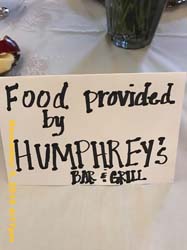 Food provided
by
HUMPHREY's
BAR & GRILL